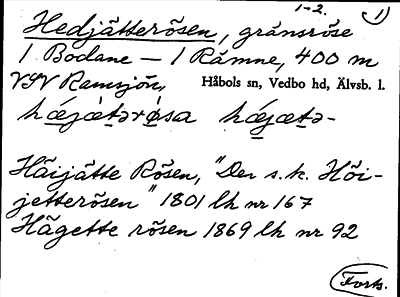 1-2. 1)
Hedjätterösen, gränsröse
1 Bodane — 1 Rämne, 400 m
VSV Ramsjön, Håbols sn, Vedbo hd, Älvsb. l.
hǽjæ̀tərǿsa hǽjætə-
Häijätte Rösen, "Der s.k. Höi-
jetterösen" 1801 lh nr 167
Hägette rösen 1869 lh nr 92
Forts.